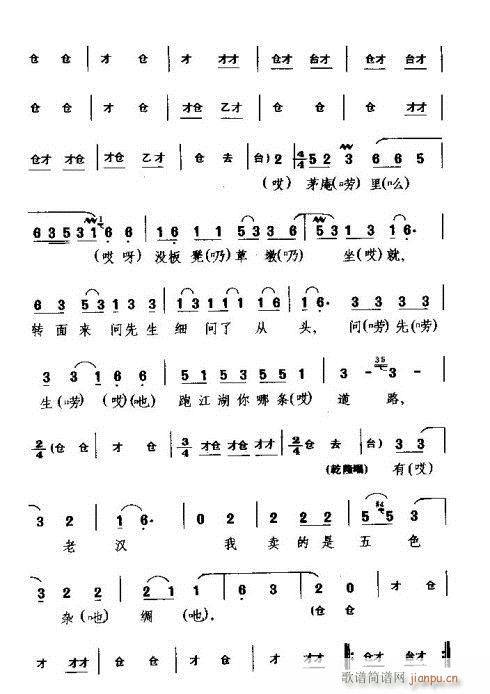 仓 仓 | 才 仓 | 才 才才 | 仓才 台才 | 仓才 台才 |
仓 仓 | 才 仓 | 才仓 乙才 | 仓 仓 | 仓 才才 |
仓才 才仓 | 才仓 乙才 | 仓 去 | 台) 2 | 4/4 5 2 3 6 6 5 |
(哎) 茅庵(唠) 里(么)
6 3 5 3 1 6 6 | 1 6 1 1 5 3 | 5 3 5 1 6 1 6· |
(哎 呀) 没板 凳(乃) 草 墩(乃) 坐(哎) 就,
6 3 5 3 1 3 | 1 3 1 1 1 2 | 1 1 6· | 3 3 3 3 |
转 面 来 问 先 生 细 问 了 从 头, 问(唠) 先(唠)
3 3 1 6 6 | 5 1 5 3 5 5 1 | 3 - 3 - |
生(唠) (哎)(吔) 跑 江 湖 你 哪 条(哎) 道 路,
2/4 (仓 仓 | 才 仓 | 3/4 才仓 才仓 才才 | 2/4 仓 去 | 台) 3 3 |
(乾隆唱) 有(哎)
3 2 | 1 6· | 0 2 | 2 2 2 3 | 5 5 5 |
老 汉 我 卖 的 是 五 色
3 2 2 | 2 1 1 | 6 3 | 2 0 | 才 仓 |
杂(吔) 绸 (吔). (仓 仓
才 才才 | 仓 仓 | 才 仓 | 才 才才 | 仓才 台才
歌谱简谱网
jianpu.cn